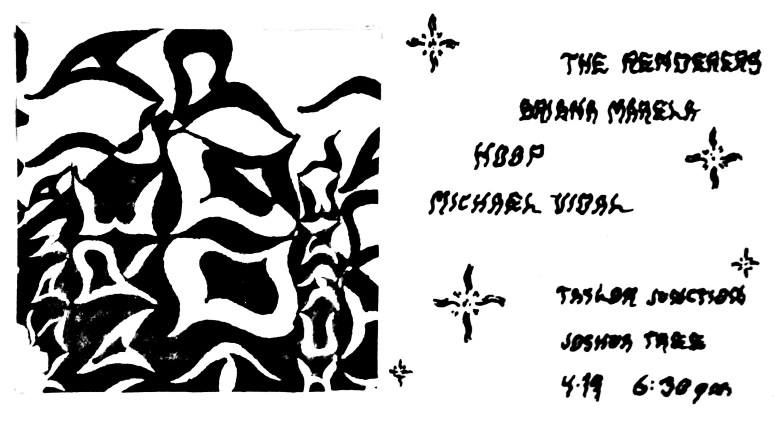 THE RENDERERS
BRIANA MARELA
HOOP
MICHAEL VIDAL
TAYLOR JUNCTION
JOSHUA TREE
4.19 6:30pm